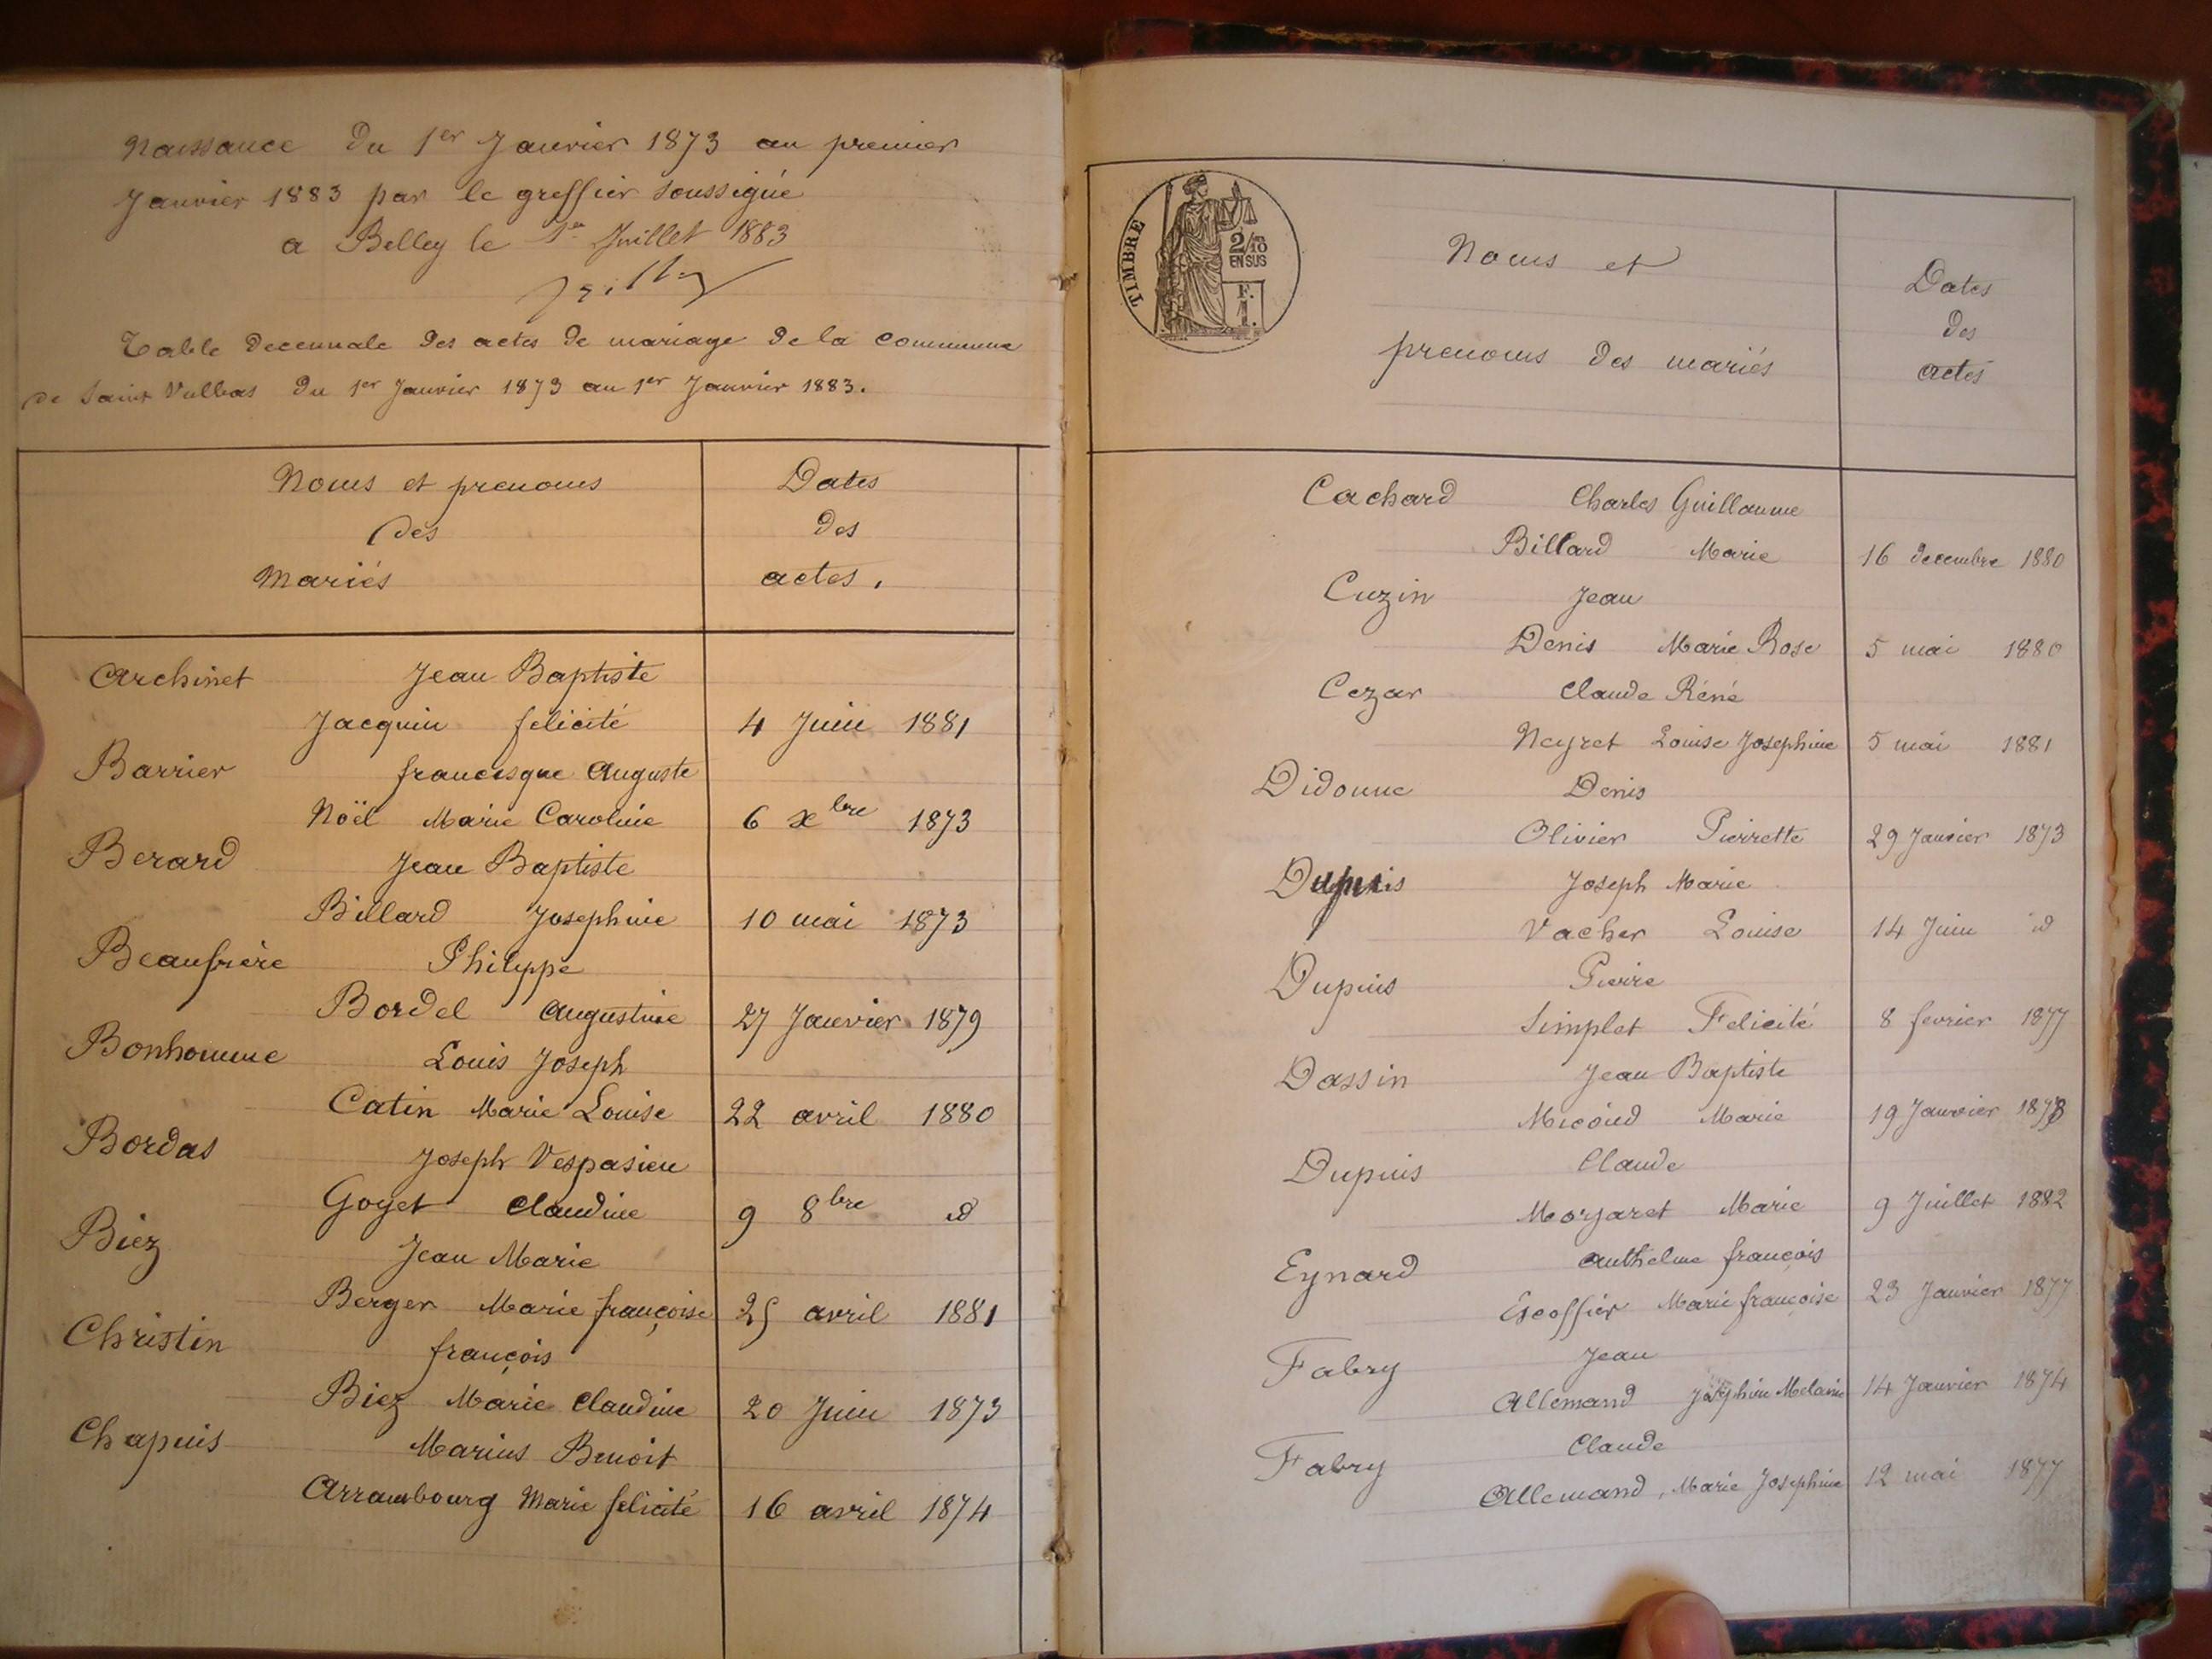 Naissance du 1er Janvier 1873 au premier
Janvier 1883 par le greffier soussigné
a Belley le 1er Juillet 1883
Table decennale des actes de mariage de la commune
de Saint Vulbas du 1er Janvier 1873 au 1er Janvier 1883.
Noms et prenoms
des
Mariés
Dates
des
actes.
Archinet Jean Baptiste
Jacquin felicité 4 Juin 1881
Barrier francisque Auguste
Noël Marie Caroline 6 xbre 1873
Berard Jean Baptiste
Billard Josephine 10 mai 1873
Beaufrère Philippe
Bordel Augustine 27 Janvier 1879
Bonhomme Louis Joseph
Catin Marie Louise 22 avril 1880
Bordas Joseph Vespasien
Goyet Claudine 9 8bre id
Biez Jean Marie
Berger Marie françoise 25 avril 1881
Christin françois
Biez Marie Claudine 20 Juin 1873
Chapuis Marius Benoit
Arrambourg Marie felicité 16 avril 1874
TIMBRE
2/10
EN SUS
F.
1.
Noms et
prenoms des mariés
Dates
des
actes
Cachard Charles Guillaume
Billard Marie 16 decembre 1880
Cuzin Jean
Denis Marie Rose 5 mai 1880
Cezar Claude Réné
Neyret Louise Josephine 5 mai 1881
Didonne Denis
Olivier Pierrette 29 Janvier 1873
Dupuis Joseph Marie
Vacher Louise 14 Juin id
Dupuis Pierre
Simplet Felicité 8 fevrier 1877
Dassin Jean Baptiste
Micoud Marie 19 Janvier 1878
Dupuis Claude
Morgaret Marie 9 Juillet 1882
Eynard Anthelme françois
Escoffier Marie françoise 23 Janvier 1877
Fabry Jean
Allemand Joséphine Melanie 14 Janvier 1874
Fabry Claude
Allemand, Marie Josephine 12 mai 1877